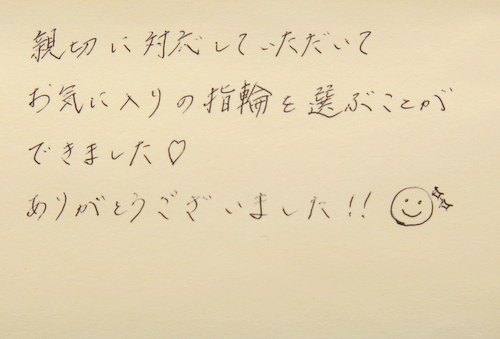 親切に対応していただいて
お気に入りの指輪を選ぶことが
できました♡
ありがとうございました!!